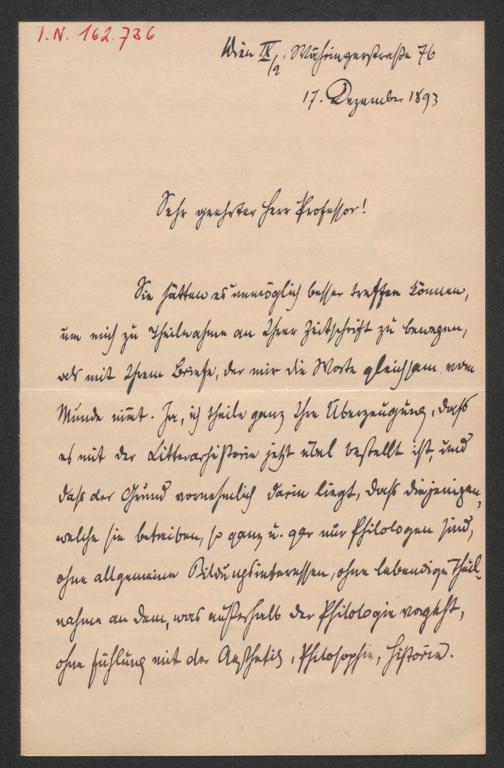 I.N. 162.736
Wien IX/2, Währingerstraße 76
17. Dezember 1893
Sehr geehrter Herr Professor!
Sie hätten es unmöglich besser treffen können,
um mich zu Theilnahme an Ihrer Zeitschrift zu bewegen,
als mit Ihrem Briefe, der mir die Worte gleichsam vom
Munde nimt. Ja, ich theile ganz Ihre Überzeugung, daß
es mit der Litterarhistorie jetzt übel bestellt ist, und
daß der Grund vornehmlich darin liegt, daß diejenigen,
welche sie betreiben, so ganz u. gar nur Philologen sind,
ohne allgemeine Bildungsinteressen, ohne lebendige Theil-
nahme an dem, was außerhalb der Philologie vorgeht,
ohne Fühlung mit der Aesthetik, Philosophie, Historie.